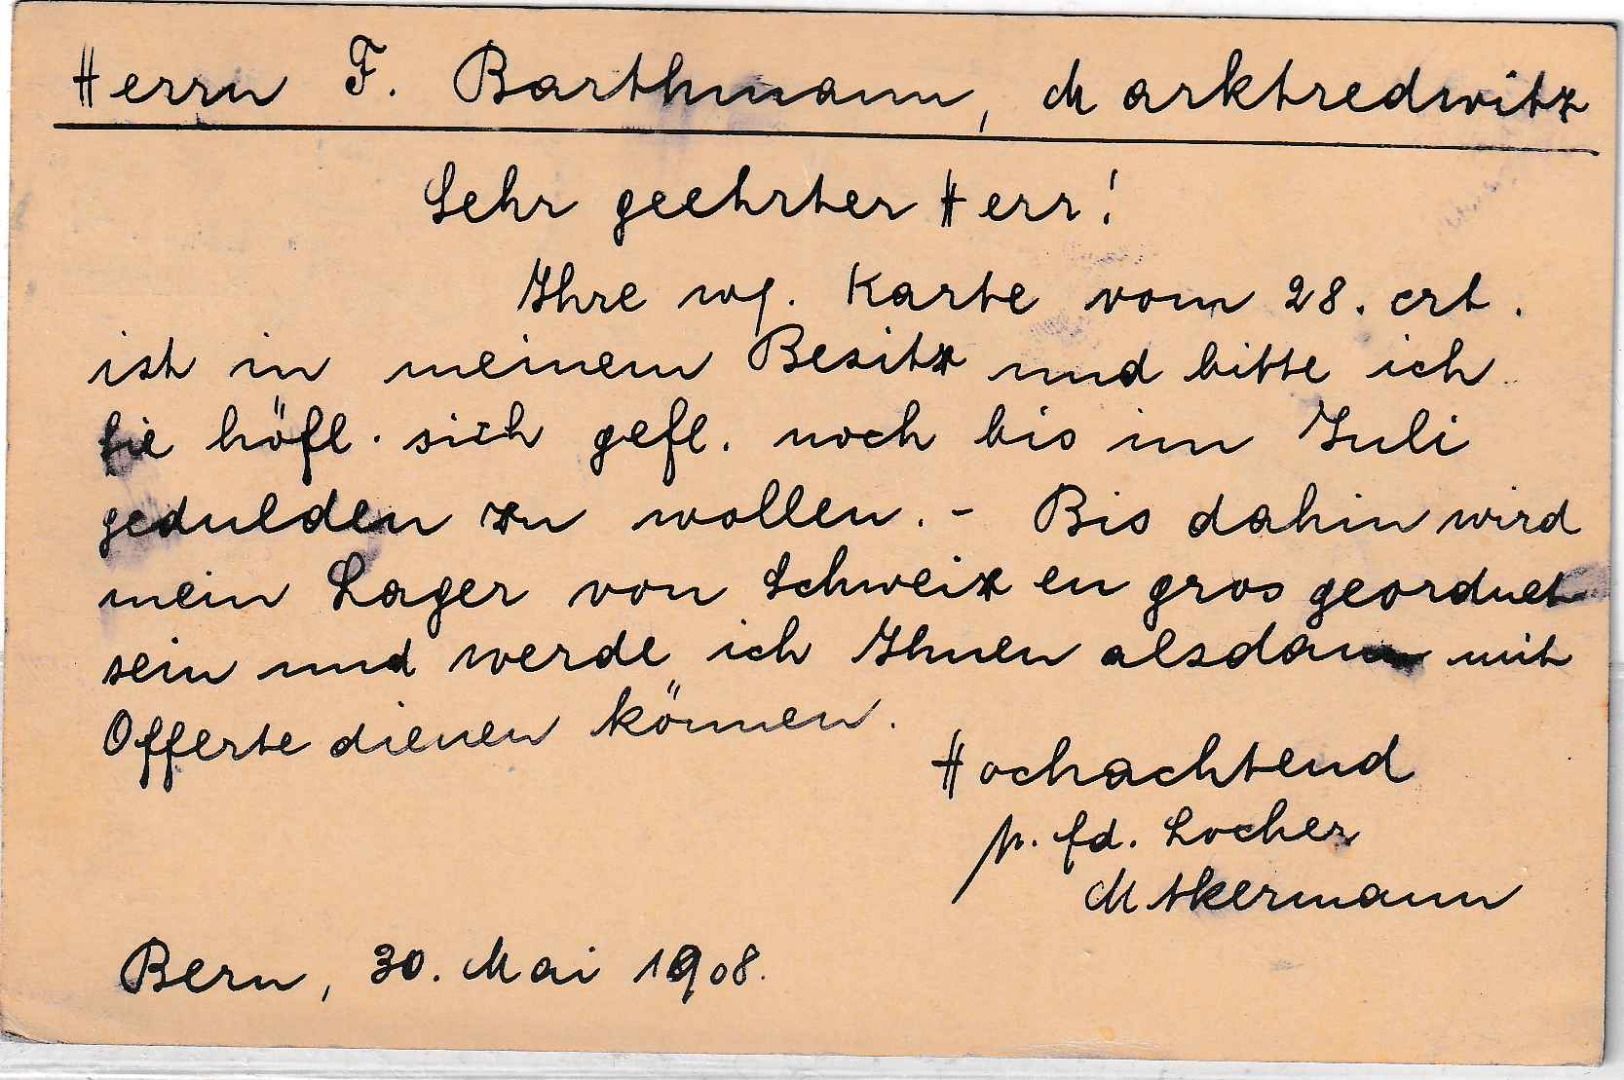 Herrn F. Barthmann, Marktredwitz
Sehr geehrter Herr!
Ihre w. Karte vom 28. crt.
ist in meinem Besitz und bitte ich
Sie höfl. sich gefl. noch bis im Juli
gedulden zu wollen. - Bis dahin wird
mein Lager von Schweiz en gros geordnet
sein und werde ich Ihnen alsdann mit
Offerte dienen können.
Hochachtend
p. Ed. Locher
Bern, 30. Mai 1908.